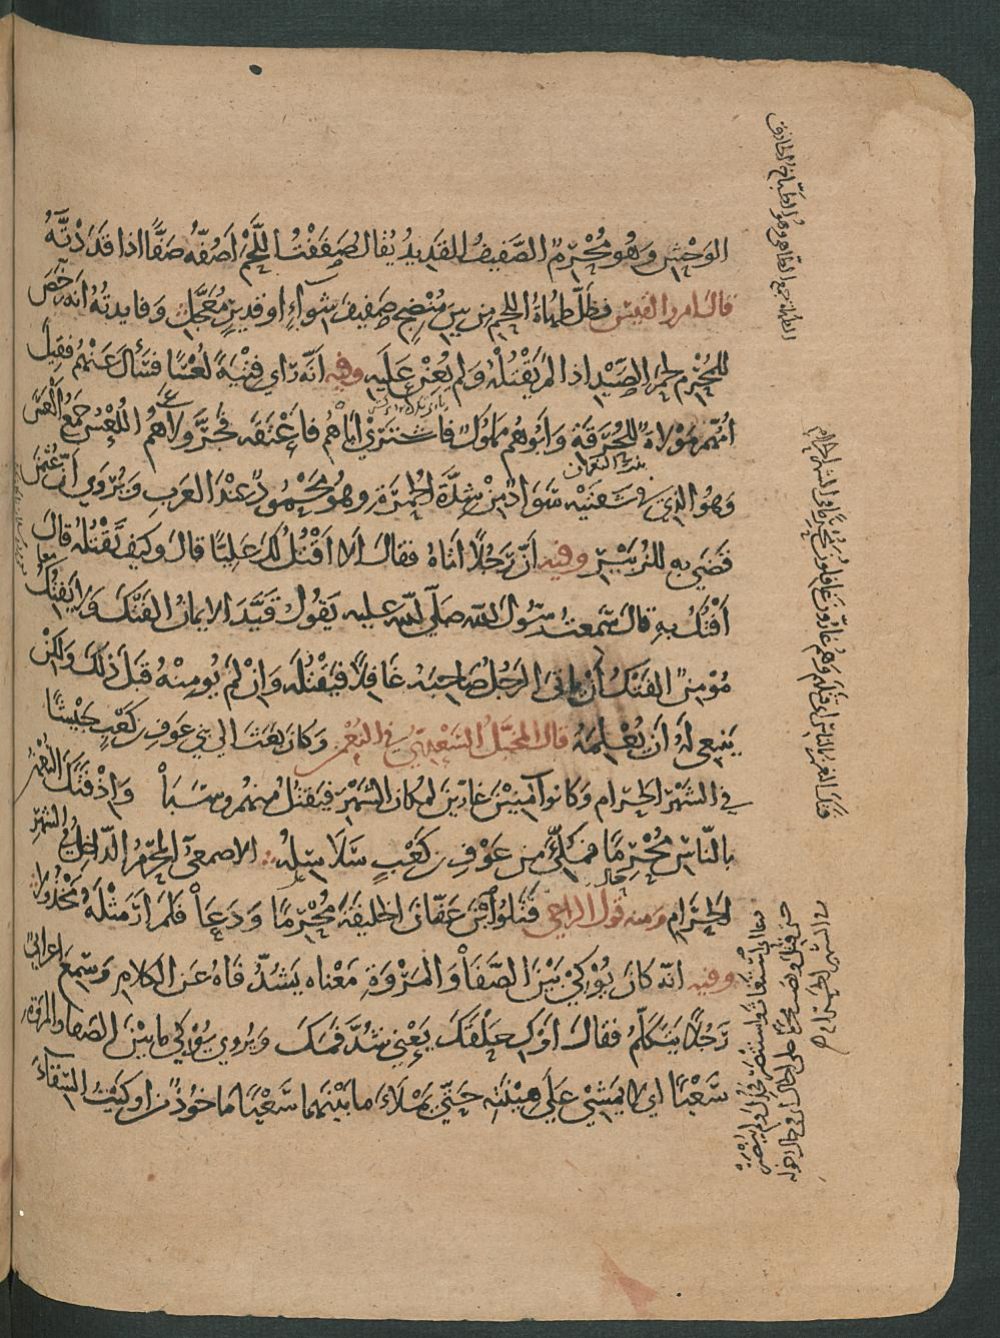 الوَحْشِ وَهُو مُحْرِمٌ الصَّفِيفُ القَدِيدُ يُقالُ صَفَفْتُ اللَّحْمَ اَصُفُّه صَفًّا اذا قَدَدْتَّهُ
قال امرؤ القيس فظَلَّ طُهاةُ اللحم من بين مُنْضِجٍ صَفيفَ شِواءٍ او قَديرٍ مُعَجَّلِ وَفايدتُهُ انه رخّصَ
للمُحْرِم لحمَ الصَّيْدِ اذا لم يَقْتُلْهُ وَلم يُعِنْ عَلَيه وفيه اَنَّه رَاي فِتْيَةً لُعْسًا فسَأَلَ عَنْهُم فقِيلَ
اُمُّهم مَوْلاةٌ للحُرَقَةِ وَاَبُوهُم مَملُوكٌ فاشتَرَي اَباهُم فاَعْتَقَه فجَرَّ وَلاَهُم اللُّعْسُ جَمعُ اَلْعَسَ
وَهُو الذي في شَفَتَيْه سَوادٌ مِنْ شِدَّةِ الحُمرَةِ وهُو مَحْمُودٌ عِنْدَ العَربِ وَيُرْوي اَنّ عُثمنَ
قَضَي به للزُّبَيْرِ وفيه اَنَّ رَجُلًا اَتاهُ فقالَ اَلا اَقْتُلُ لكَ عَلِيًّا قالَ وكيفَ تَقْتُلُه قالَ
اَفْتُكُ بهِ قالَ سَمعتُ رسُولَ الله صَلّي الله عليه يَقُولُ قَيَّدَ الايمانُ الفَتْكَ وَلا يَفتُكُ
مُؤمِنٌ الفَتْكُ اَنْ ياتيَ الرجُلُ صَاحِبَهُ غافِلًا فيَقْتُلَه وَاِنْ لم يُومِنْهُ قَبلَ ذلكَ وَلكِنْ
يَنبغي لهُ اَن يُعْلِمَهُ قال المخبَّلُ السَّعْدِيّ في النُّعْمن وَكانَ بَعَثَ الي بني عَوفِ بن كَعْبٍ جَيْشًا
في الشهْرِ الحَرامِ وَكانوا آمِنينَ غارّينَ لمكان الشهْر فيَقتلُ منهم وسَبَا وَاِذْ فَتَكَ النُّعْمنُ
بالنّاسِ مُحْرِمًا فمُلِّئَ من عَوْفِ بن كَعْبٍ سَلاسِلُه الاصمعيّ المُحْرِمُ الدّاخِلُ في الشهْرِ
الحَرامِ ومنه قَولُ الراعي قَتَلُوا ابنَ عَفّانَ الخليفَةَ مُحْرِمًا وَدَعَا فلَم اَرَ مِثْلَهُ مَخْذُولا
وفيه انّه كانَ يُوْكِيْ بَيْنَ الصَّفَا وَالمَرْوَةِ مَعْناه يَشُدُّ فاهُ عَنِ الكلامِ وَسَمِعَ اعرابيٌّ
رَجُلًا يَتكَلّمُ فقالَ اَوْكِ حَلْقَكَ يَعْني شُدَّ فمَكَ وَيُروي يُوْكي ما بيْنَ الصفا والمَروَةِ
سَعْيًا اي لا يَمشي عَلَي هِيْنَتِه حَتّي يَمْلاَءَ ما بَيْنَهما سَعْيًا ماخوذٌ من اوكَيْتُ السِّقاءَ